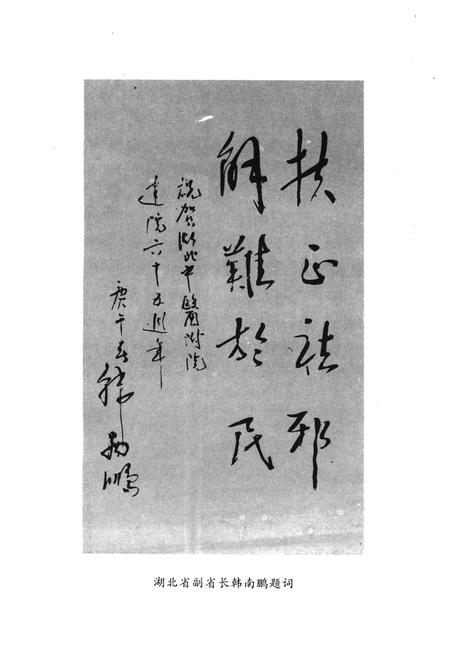 扶正祛邪
解難於民
祝贺湖北中醫附院
建院六十五週年
庚午春
韩南鹏
湖北省副省长韩南鹏题词